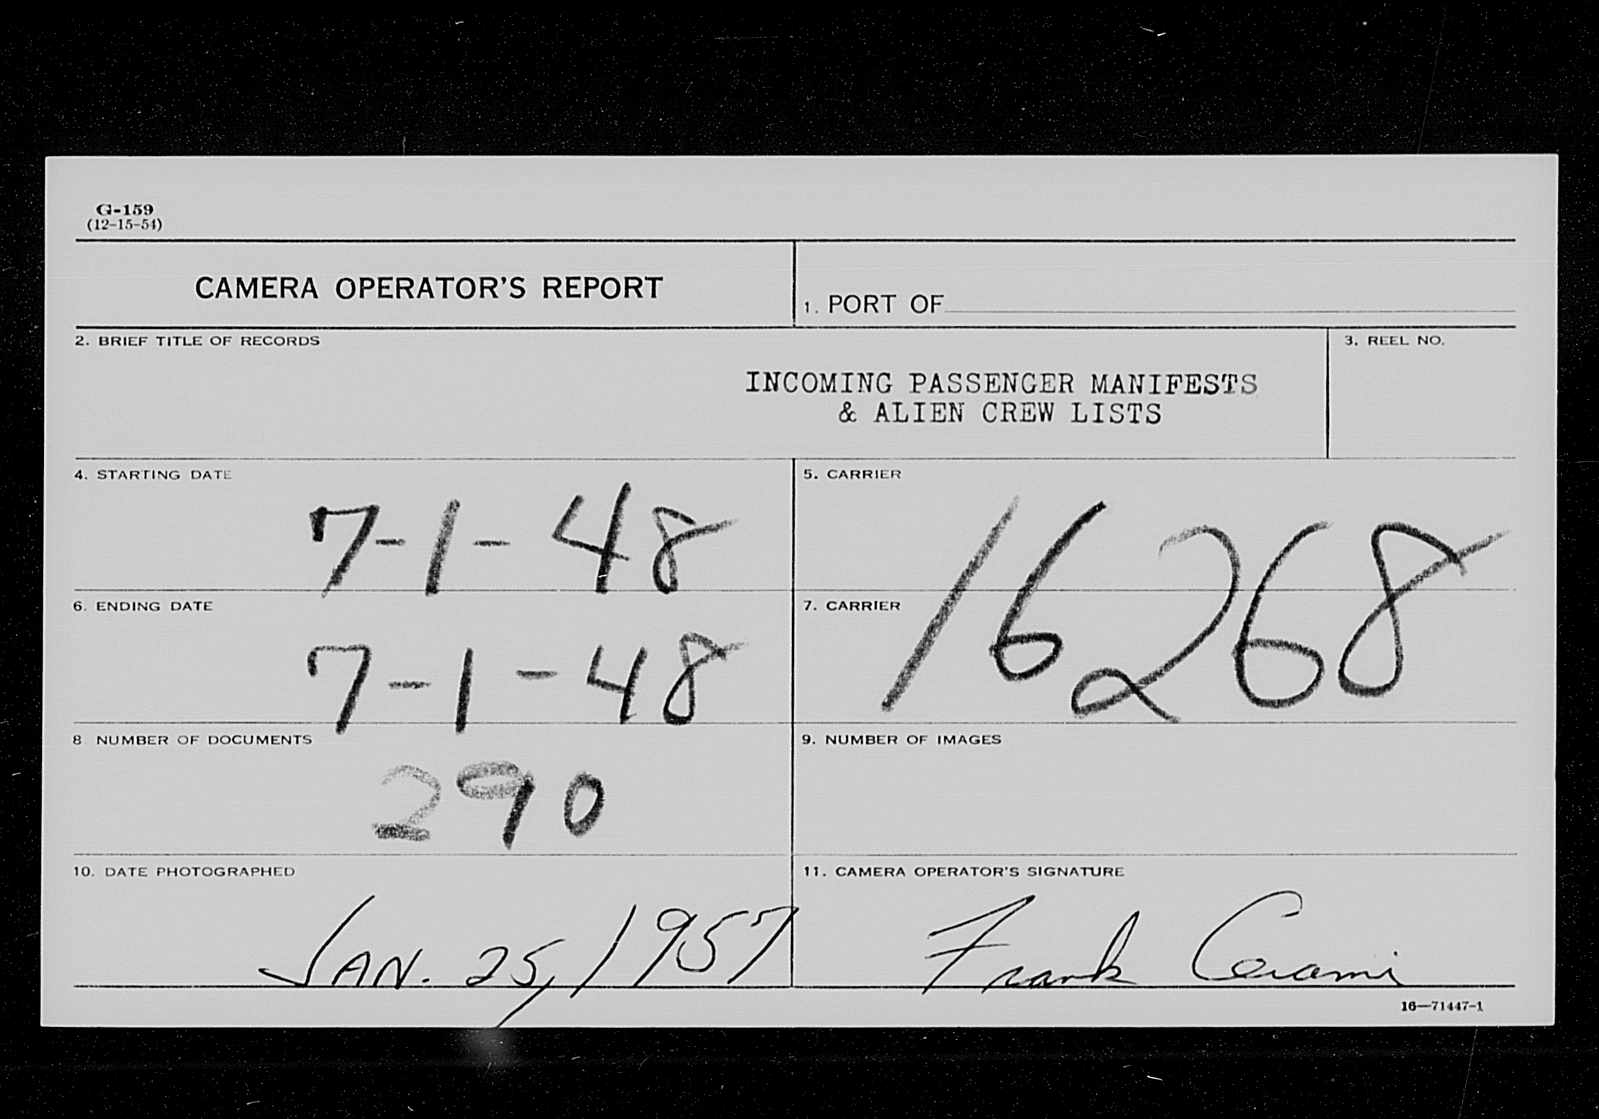 G-159
(12-15-54)
CAMERA OPERATOR'S REPORT
1. PORT OF
2. BRIEF TITLE OF RECORDS
INCOMING PASSENGER MANIFESTS
& ALIEN CREW LISTS
3. REEL NO.
4. STARTING DATE
7-1-48
5. CARRIER
16268
6. ENDING DATE
7-1-48
7. CARRIER
8 NUMBER OF DOCUMENTS
290
9. NUMBER OF IMAGES
10. DATE PHOTOGRAPHED
JAN. 25, 1957
11. CAMERA OPERATOR'S SIGNATURE
Frank Cerami
16—71447-1